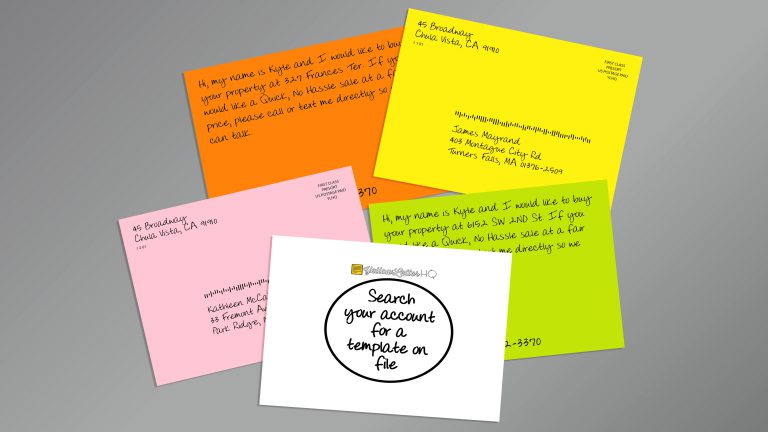 Hi, my name is Kyle and I would like to buy
your property at 327 Frances Ter. If you
would like a Quick, No Hassle sale at a
price, please call or text me directly so
can talk.
3370
45 Broadway
Chula Vista, CA 91910
FIRST CLASS
PRESORT
US POSTAGE PAID
YLHQ
James Mayrand
403 Montague City Rd
Turners Falls, MA 01376-2509
45 Broadway
Chula Vista, CA 91910
FIRST CLASS
PRESORT
US POSTAGE PAID
YLHQ
Kathleen
33 Fremont
Park Ridge,
Hi, my name is Kyle and I would like to buy
your property at 6152 SW 2ND St. If you
like a Quick, No Hassle sale at a fair
me directly so we
2-3370
YellowLetterHQ
Search
your account
for a
template on
file